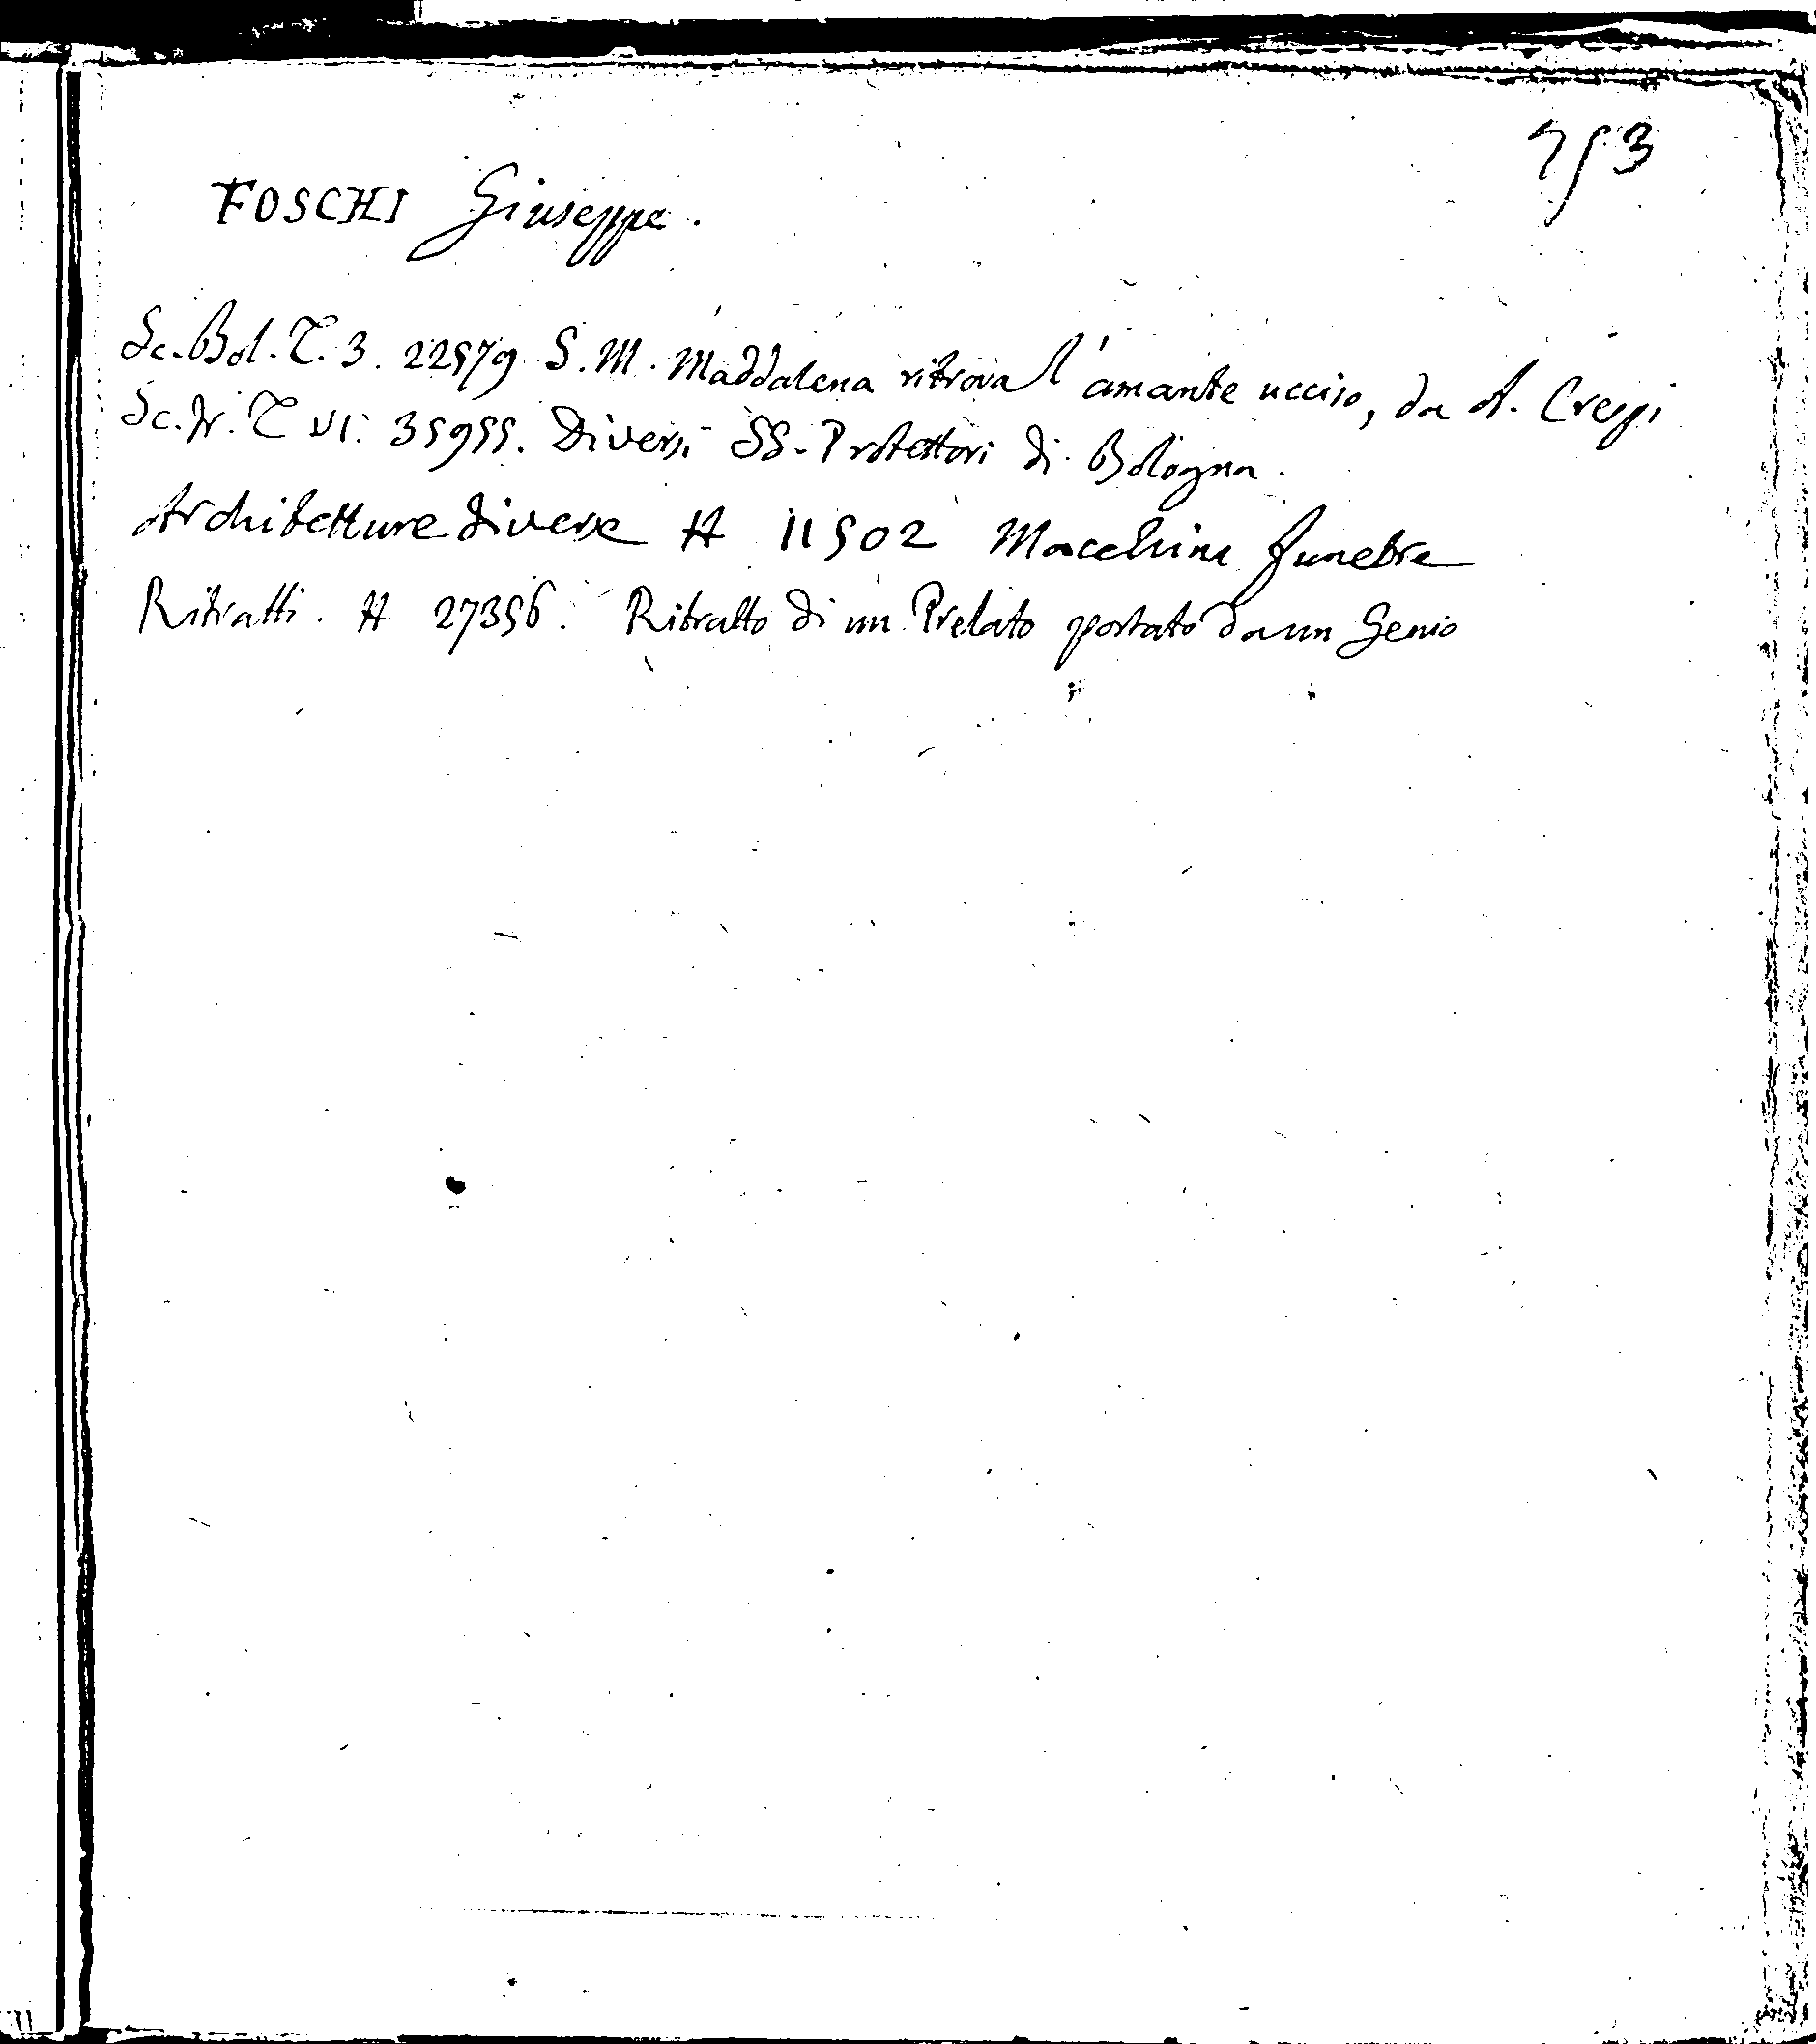 753
FOSCHI Giuseppe.
Sc. Bol. T. 3. 22579 S. M. Maddalena ritrova l'amante ucciso, da A. Crespi
Sc. Fr. T VI. 35955. Diversi SS. Protettori di Bologna.
Architetture diverse H 11502 Macchina funebre
Ritratti. H 27356. Ritratto di un Prelato portato da un Genio